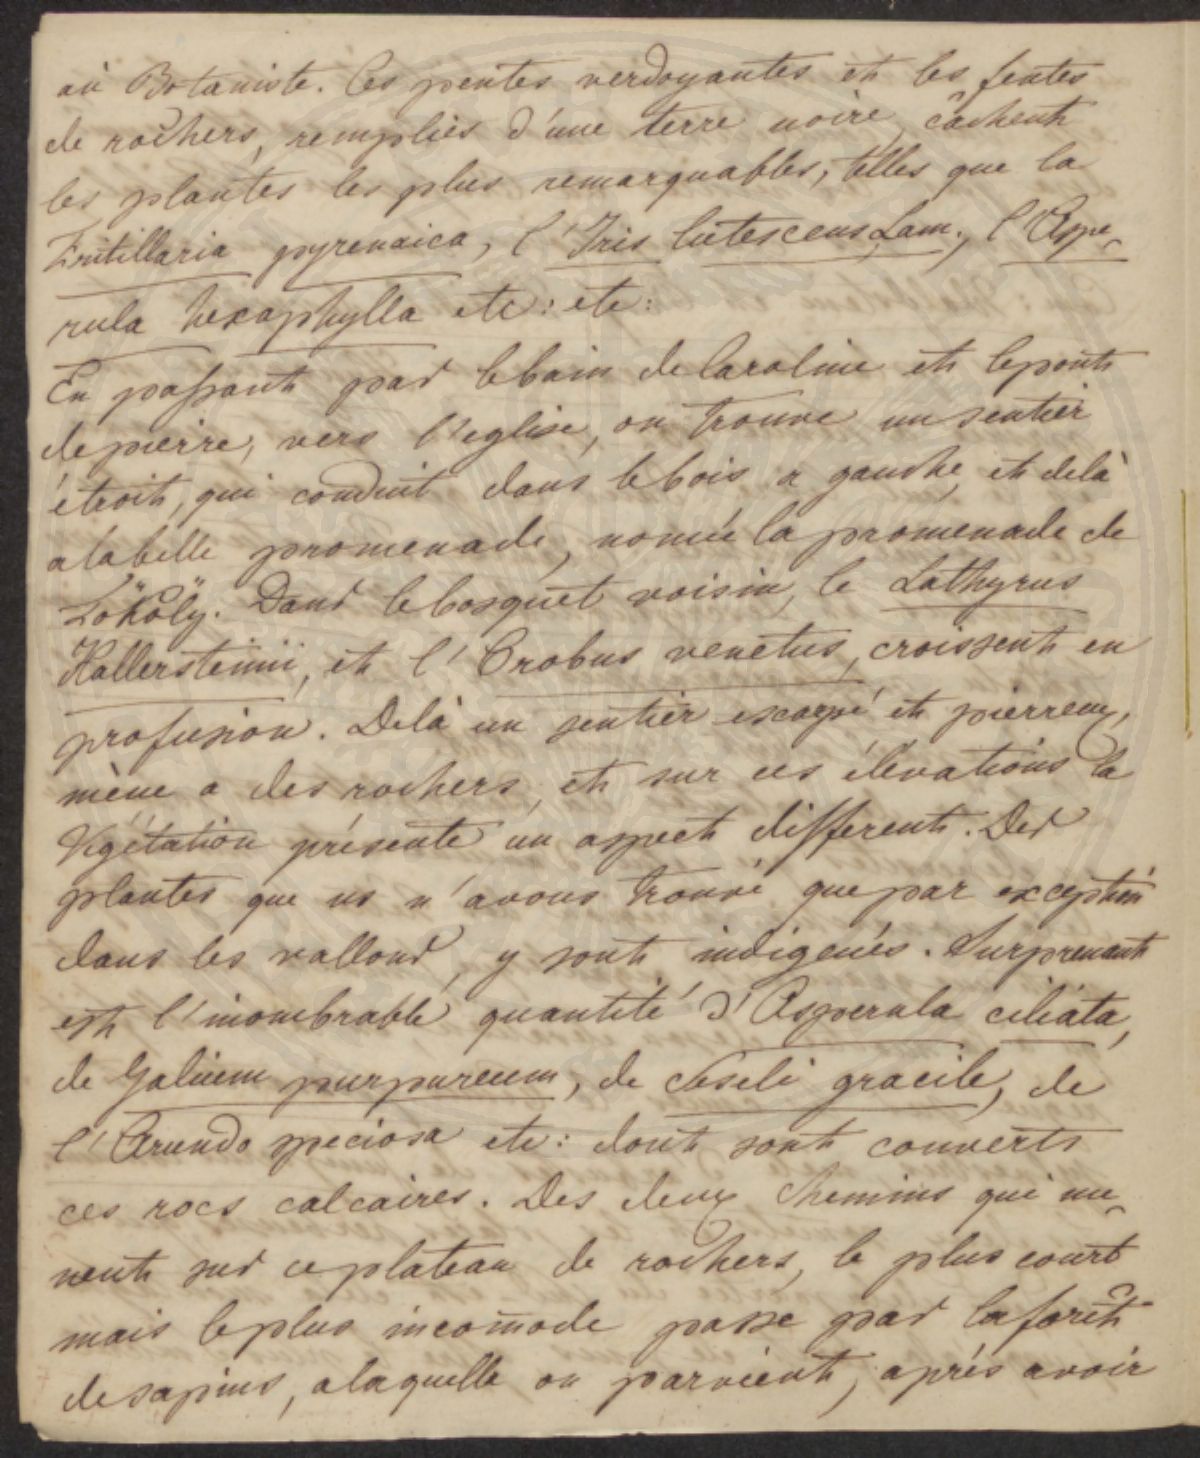 au Botaniste. Ces pentes verdoyantes et les fentes
de rochers, remplies d'une terre noire, cachent
les plantes les plus remarquables, telles que la
Fritillaria pyrenaica, l'Iris lutescens Lam., l'Aspe-
rula hexaphylla etc: etc:
En passant par le bain de Caroline et le pont
de pierre, vers l'eglise, on trouve un sentier
étroit, qui conduit dans le bois a gauche, et delà
a la belle promenade, nomée la promenade de
Lököly. Dans le bosquet voisin, le Lathyrus
Hallersteinii, et l'Orobus venetus, croissent en
profusion. Delà un sentier escarpé et pierreux,
mène a des rochers, et sur ces élevations la
Végétation présente un aspect different. Des
plantes que ns n'avons trouvé que par exception
dans les vallons, y sont indigenès. Surprenant
est l'inombrable quantité d'Asperula ciliata,
de Galium purpureum, de Seseli gracile, de
l'Arundo speciosa etc: dont sont couverts
ces rocs calcaires. Des deux chemins qui me-
nent sur ce plateau de rochers, le plus court
mais le plus incom̄ode passe par la forêt
de sapins, a laquelle on parvient, après avoir